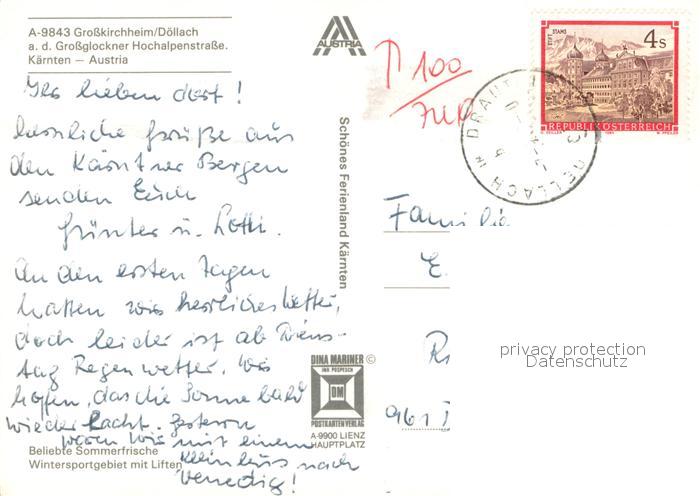 A-9843 Großkirchheim/Döllach
a. d. Großglockner Hochalpenstraße.
Kärnten — Austria
Ihr lieben dort!
herzliche Grüße aus
den Kärntner Bergen
senden Euch
Günter u. Lotti.
An den ersten Tagen
hatten wir herrliches Wetter,
doch leider ist ab Diens-
tag Regenwetter. Wir
hoffen, das die Sonne bald
wieder lacht. Gestern
waren wir mit einem
Kleinbus nach
Venedig!
Beliebte Sommerfrische
Wintersportgebiet mit Liften
AUSTRIA
Schönes Ferienland Kärnten
DINA MARINER ©
ING POSPESCH
DM
POSTKARTENVERLAG
A-9900 LIENZ
HAUPTPLATZ
T 100
STIFT STAMS
4 S
REPUBLIK ÖSTERREICH
DELLACH DRAU
Familie
E.
961
privacy protection
Datenschutz